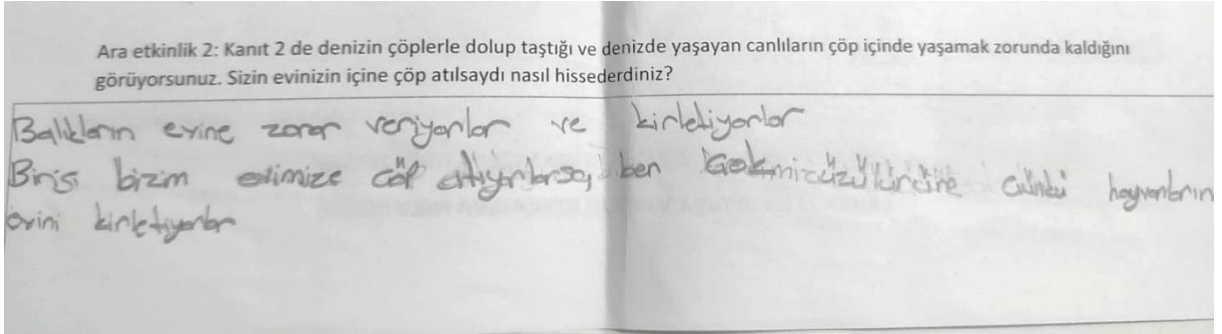 Ara etkinlik 2: Kanıt 2 de denizin çöplerle dolup taştığı ve denizde yaşayan canlıların çöp içinde yaşamak zorunda kaldığını
görüyorsunuz. Sizin evinizin içine çöp atılsaydı nasıl hissederdiniz?
Balıkların evine zarar veriyorlar ve kirletiyorlar
Birisi bizim evimize çöp atıyorlarsa, ben çünkü hayvanların
evini kirletiyorlar